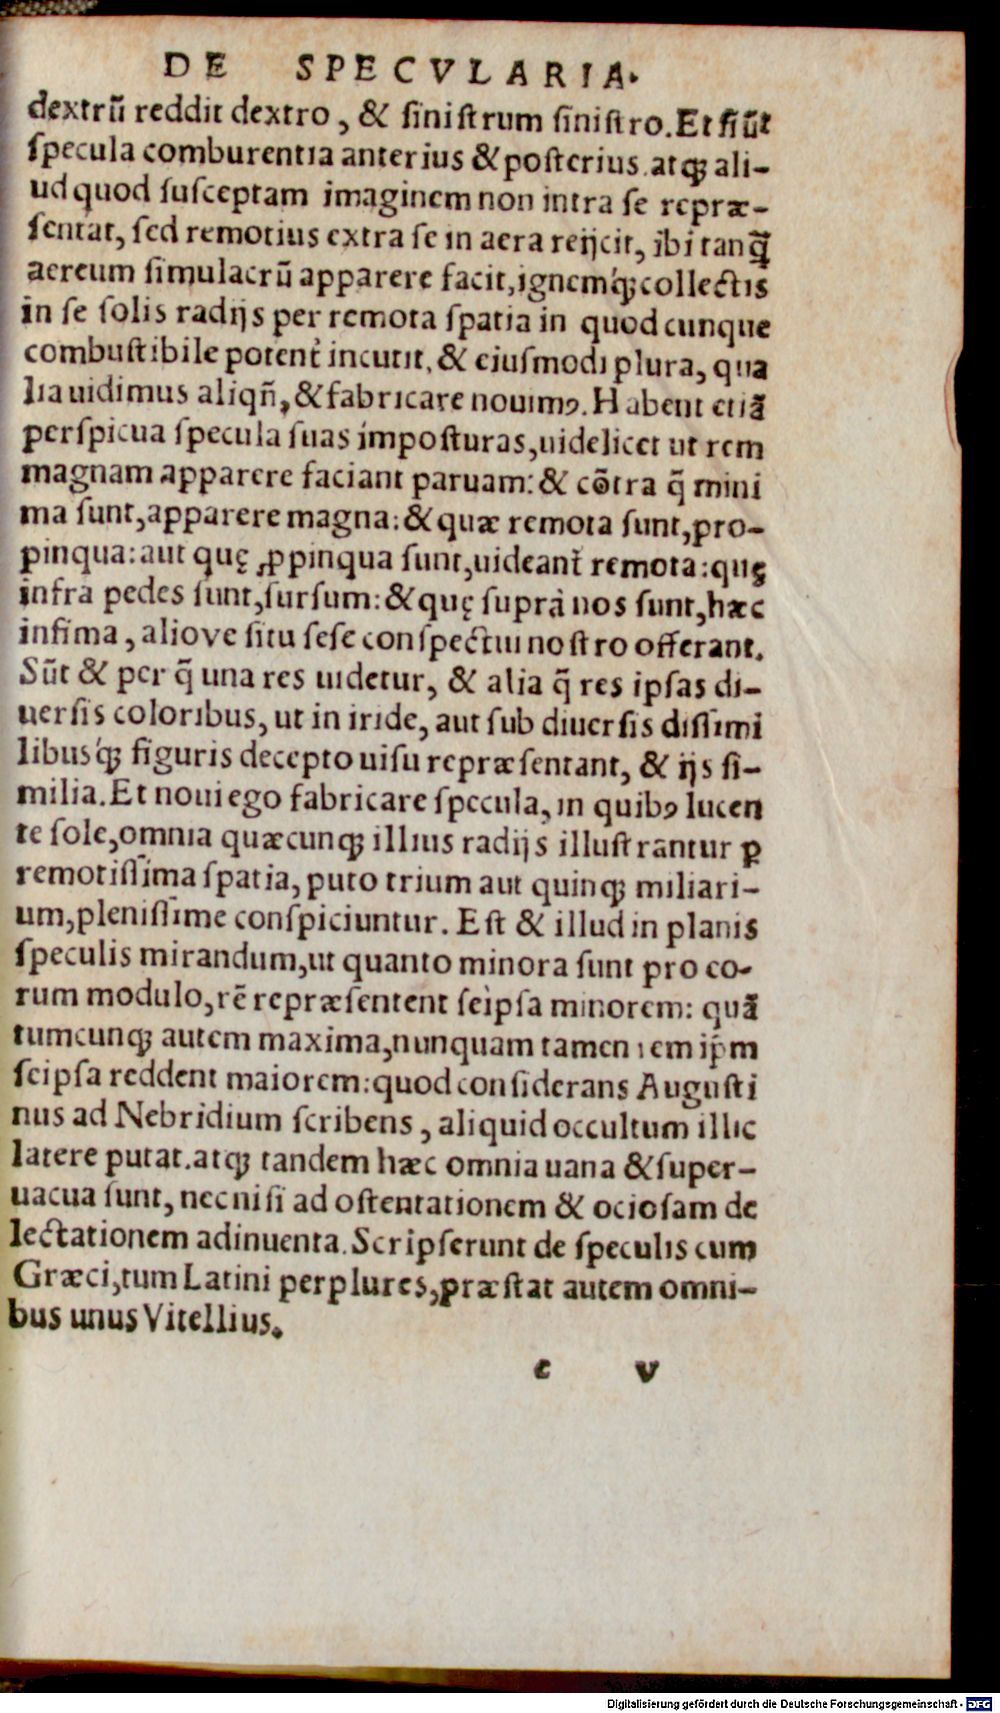 DE SPECVLARIA.
dextrũ reddit dextro, & ſiniſtrum ſiniſtro. Et fiũt
ſpecula comburentia anterius & poſterius. atq; ali-
ud quod ſuſceptam imaginem non intra ſe repræ-
ſentat, ſed remotius extra ſe in aera reijcit, ibi tanq̃
aereum ſimulacrũ apparere facit, ignemq́; collectis
in ſe ſolis radijs per remota ſpatia in quodcunque
combuſtibile potent̃ incutit, & eiuſmodi plura, qua
lia uidimus aliqñ, & fabricare nouimꝰ. Habent etiã
perſpicua ſpecula ſuas impoſturas, uidelicet ut rem
magnam apparere faciant paruam: & cõtra q̃ mini
ma ſunt, apparere magna: & quæ remota ſunt, pro-
pinqua: aut quę ꝓpinqua ſunt, uideant̃ remota: quę
infra pedes ſunt, ſurſum: & quę ſupra nos ſunt, hæc
infima, aliove ſitu ſeſe conſpectui noſtro offerant.
Sũt & per q̃ una res uidetur, & alia q̃ res ipſas di-
uerſis coloribus, ut in iride, aut ſub diuerſis diſſimi
libusq́; figuris decepto uiſu repræſentant, & ijs ſi-
milia. Et noui ego fabricare ſpecula, in quibꝰ lucen
te ſole, omnia quæcunq; illius radijs illuſtrantur ꝑ
remotiſſima ſpatia, puto trium aut quinq; miliari-
um, pleniſſime conſpiciuntur. Eſt & illud in planis
ſpeculis mirandum, ut quanto minora ſunt pro eo-
rum modulo, rẽ repræſentent ſeipſa minorem: quã
tumcunq; autem maxima, nunquam tamen rem ip̃m
ſeipſa reddent maiorem: quod conſiderans Auguſti
nus ad Nebridium ſcribens, aliquid occultum illic
latere putat. atq; tandem hæc omnia uana & ſuper-
uacua ſunt, nec niſi ad oſtentationem & ocioſam de
lectationem adinuenta. Scripſerunt de ſpeculis cum
Græci, tum Latini perplures, præſtat autem omni-
bus unus Vitellius.
c v
Digitalisierung gefördert durch die Deutsche Forschungsgemeinschaft - DFG